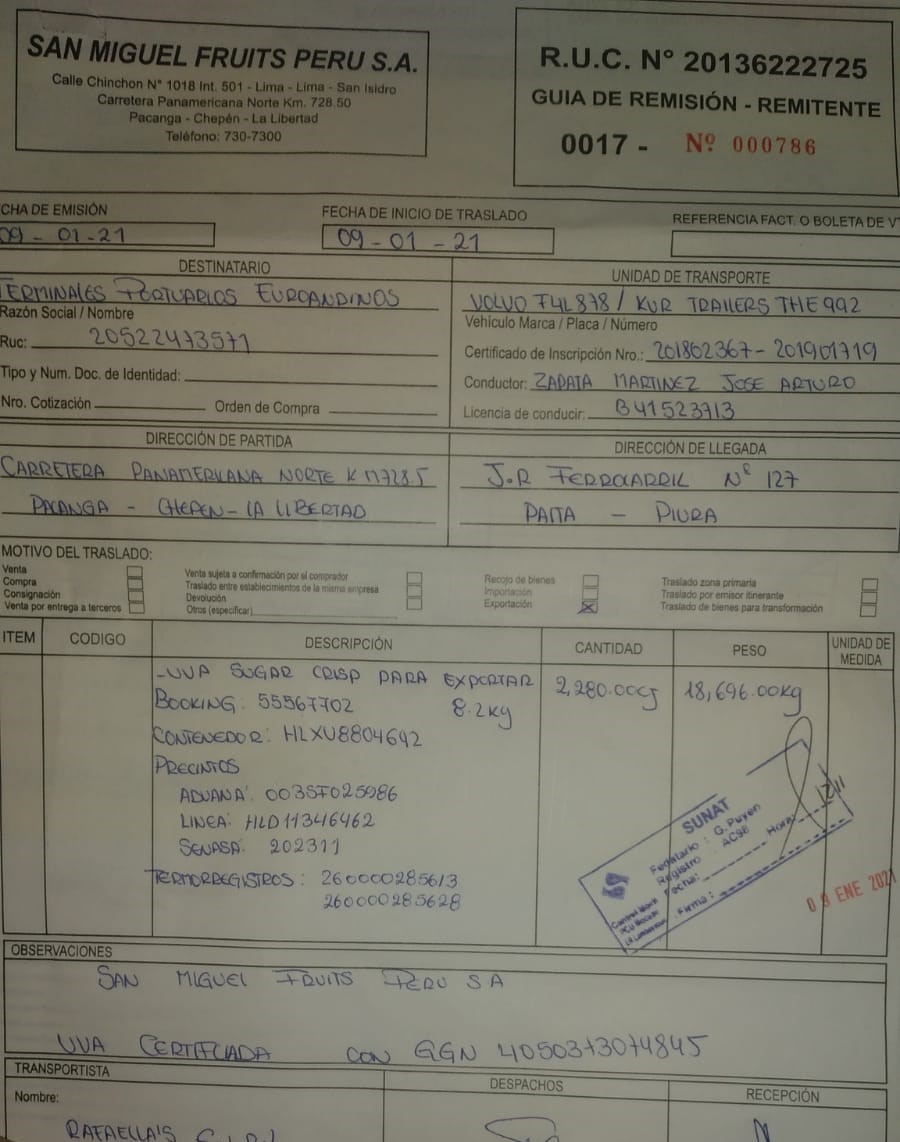 SAN MIGUEL FRUITS PERU S.A.
Calle Chinchon N° 1018 Int. 501 - Lima - Lima - San Isidro
Carretera Panamericana Norte Km. 728.50
Pacanga - Chepén - La Libertad
Teléfono: 730-7300
R.U.C. N° 20136222725
GUIA DE REMISIÓN - REMITENTE
0017 - Nº 000786
CHA DE EMISIÓN
09 - 01 - 21
FECHA DE INICIO DE TRASLADO
09 - 01 - 21
REFERENCIA FACT. O BOLETA DE V
DESTINATARIO
TERMINALES PORTUARIOS EUROANDINOS
Razón Social / Nombre
Ruc: 20522473571
Tipo y Num. Doc. de Identidad:
Nro. Cotización Orden de Compra
UNIDAD DE TRANSPORTE
VOLVO F4L878 / KUR TRAILERS THE992
Vehículo Marca / Placa / Número
Certificado de Inscripción Nro.: 201802367 - 201901719
Conductor: ZAPATA MARTINEZ JOSE ARTURO
Licencia de conducir: B41523713
DIRECCIÓN DE PARTIDA
CARRETERA PANAMERICANA NORTE KM728.5
PACANGA - CHEPEN - LA LIBERTAD
DIRECCIÓN DE LLEGADA
J.R FERROCARRIL Nº 127
PAITA - PIURA
MOTIVO DEL TRASLADO:
Venta
Compra
Consignación
Venta por entrega a terceros
Venta sujeta a confirmación por el comprador
Traslado entre establecimientos de la misma empresa
Devolución
Otros (especificar)
Recojo de bienes
Importación
Exportación X
Traslado zona primaria
Traslado por emisor itinerante
Traslado de bienes para transformación
ITEM CODIGO DESCRIPCIÓN CANTIDAD PESO UNIDAD DE MEDIDA
- UVA SUGAR CRISP PARA EXPORTAR 2,280.00CJ 18,696.00KG
BOOKING: 55567702 8.2KG
CONTENEDOR: HLXU8804692
PRECINTOS
ADUANA: 00357025986
LINEA: HLD11346462
SENASA: 202311
TERMORREGISTROS: 260000285613
260000285628
SUNAT
Fedatario : G. Puyen
Registro : AC98
Fecha: Hora: 12/11
Firma:
09 ENE 2021
OBSERVACIONES
SAN MIGUEL FRUITS PERU S A
UVA CERTIFICADA CON GGN 4050373074845
TRANSPORTISTA
Nombre:
RAFAELLA'S
DESPACHOS
RECEPCIÓN